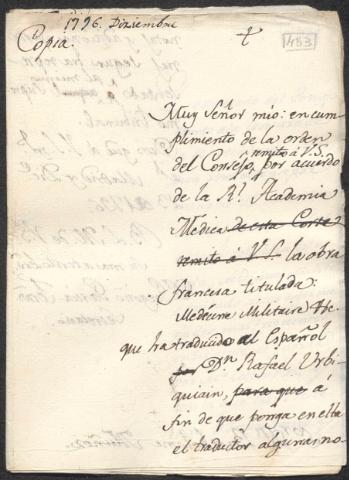 1796. Diziembre
Copia.
453
Muy Señor mio: en cum-
plimiento de la orden
del Consejo, remito á V.S.
por acuerdo
de la Rl. Academia
Medica de esta Corte
remito á V.S. la obra
francesa titulada:
Medecine Militaire &c.
que ha traducido al Español
por Dn. Rafael Urbi-
quiain, para que á
fin de que ponga en ella
el traductor algunas no-